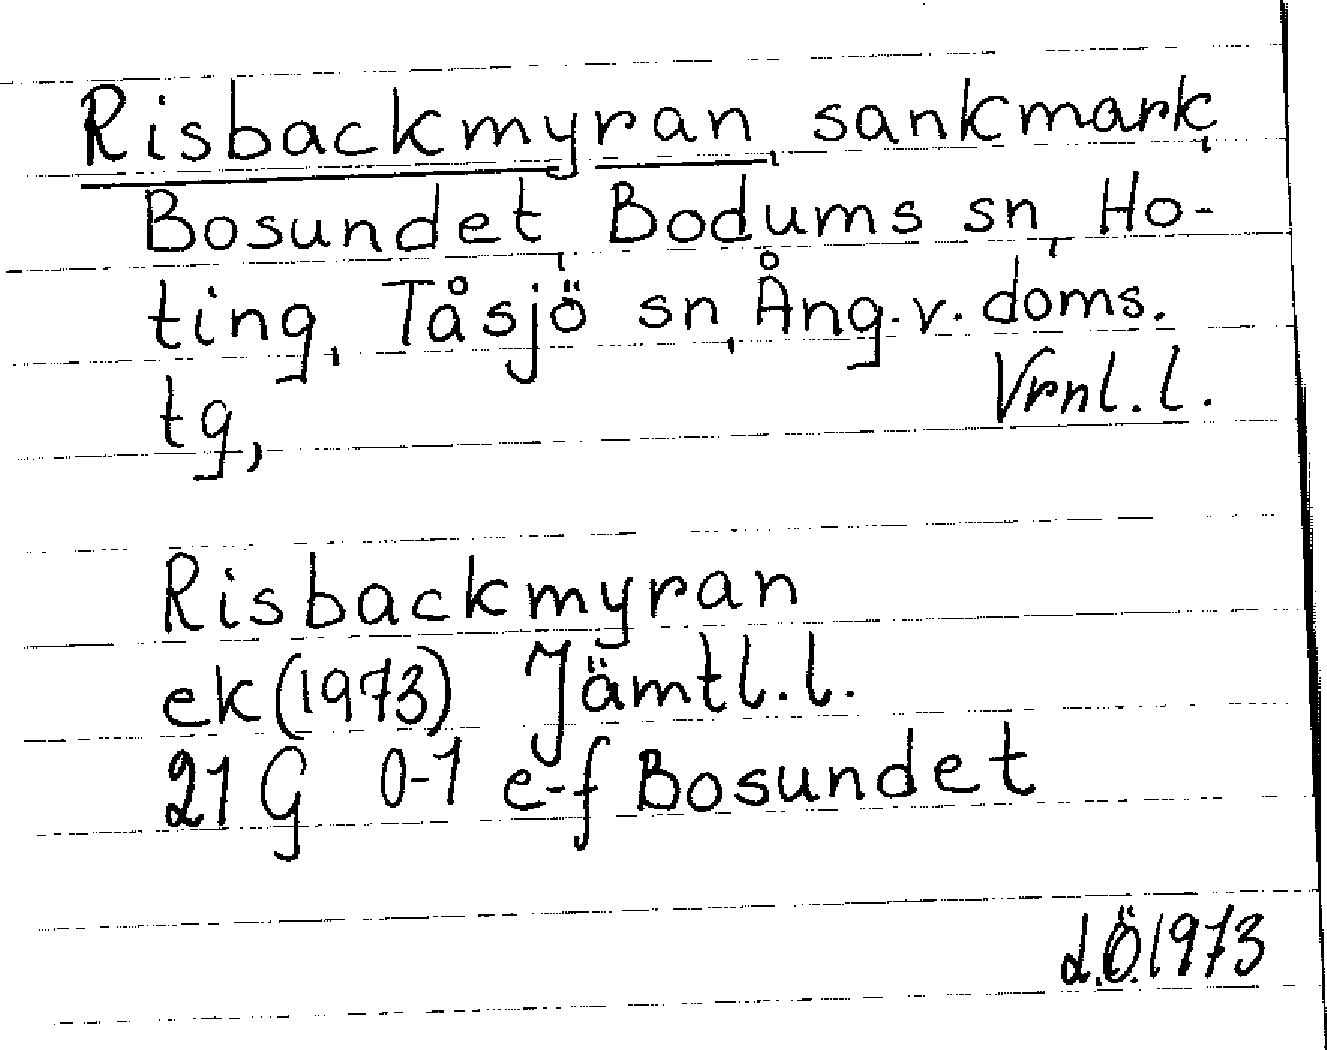 Risbackmyran, sankmark,
Bosundet, Bodums sn, Ho-
ting, Tåsjö sn, Ång. v. doms.
tg, Vrnl. l.
Risbackmyran
ek (1973) Jämtl. l.
21 G 0-1 e-f Bosundet
L.Ö. 1973